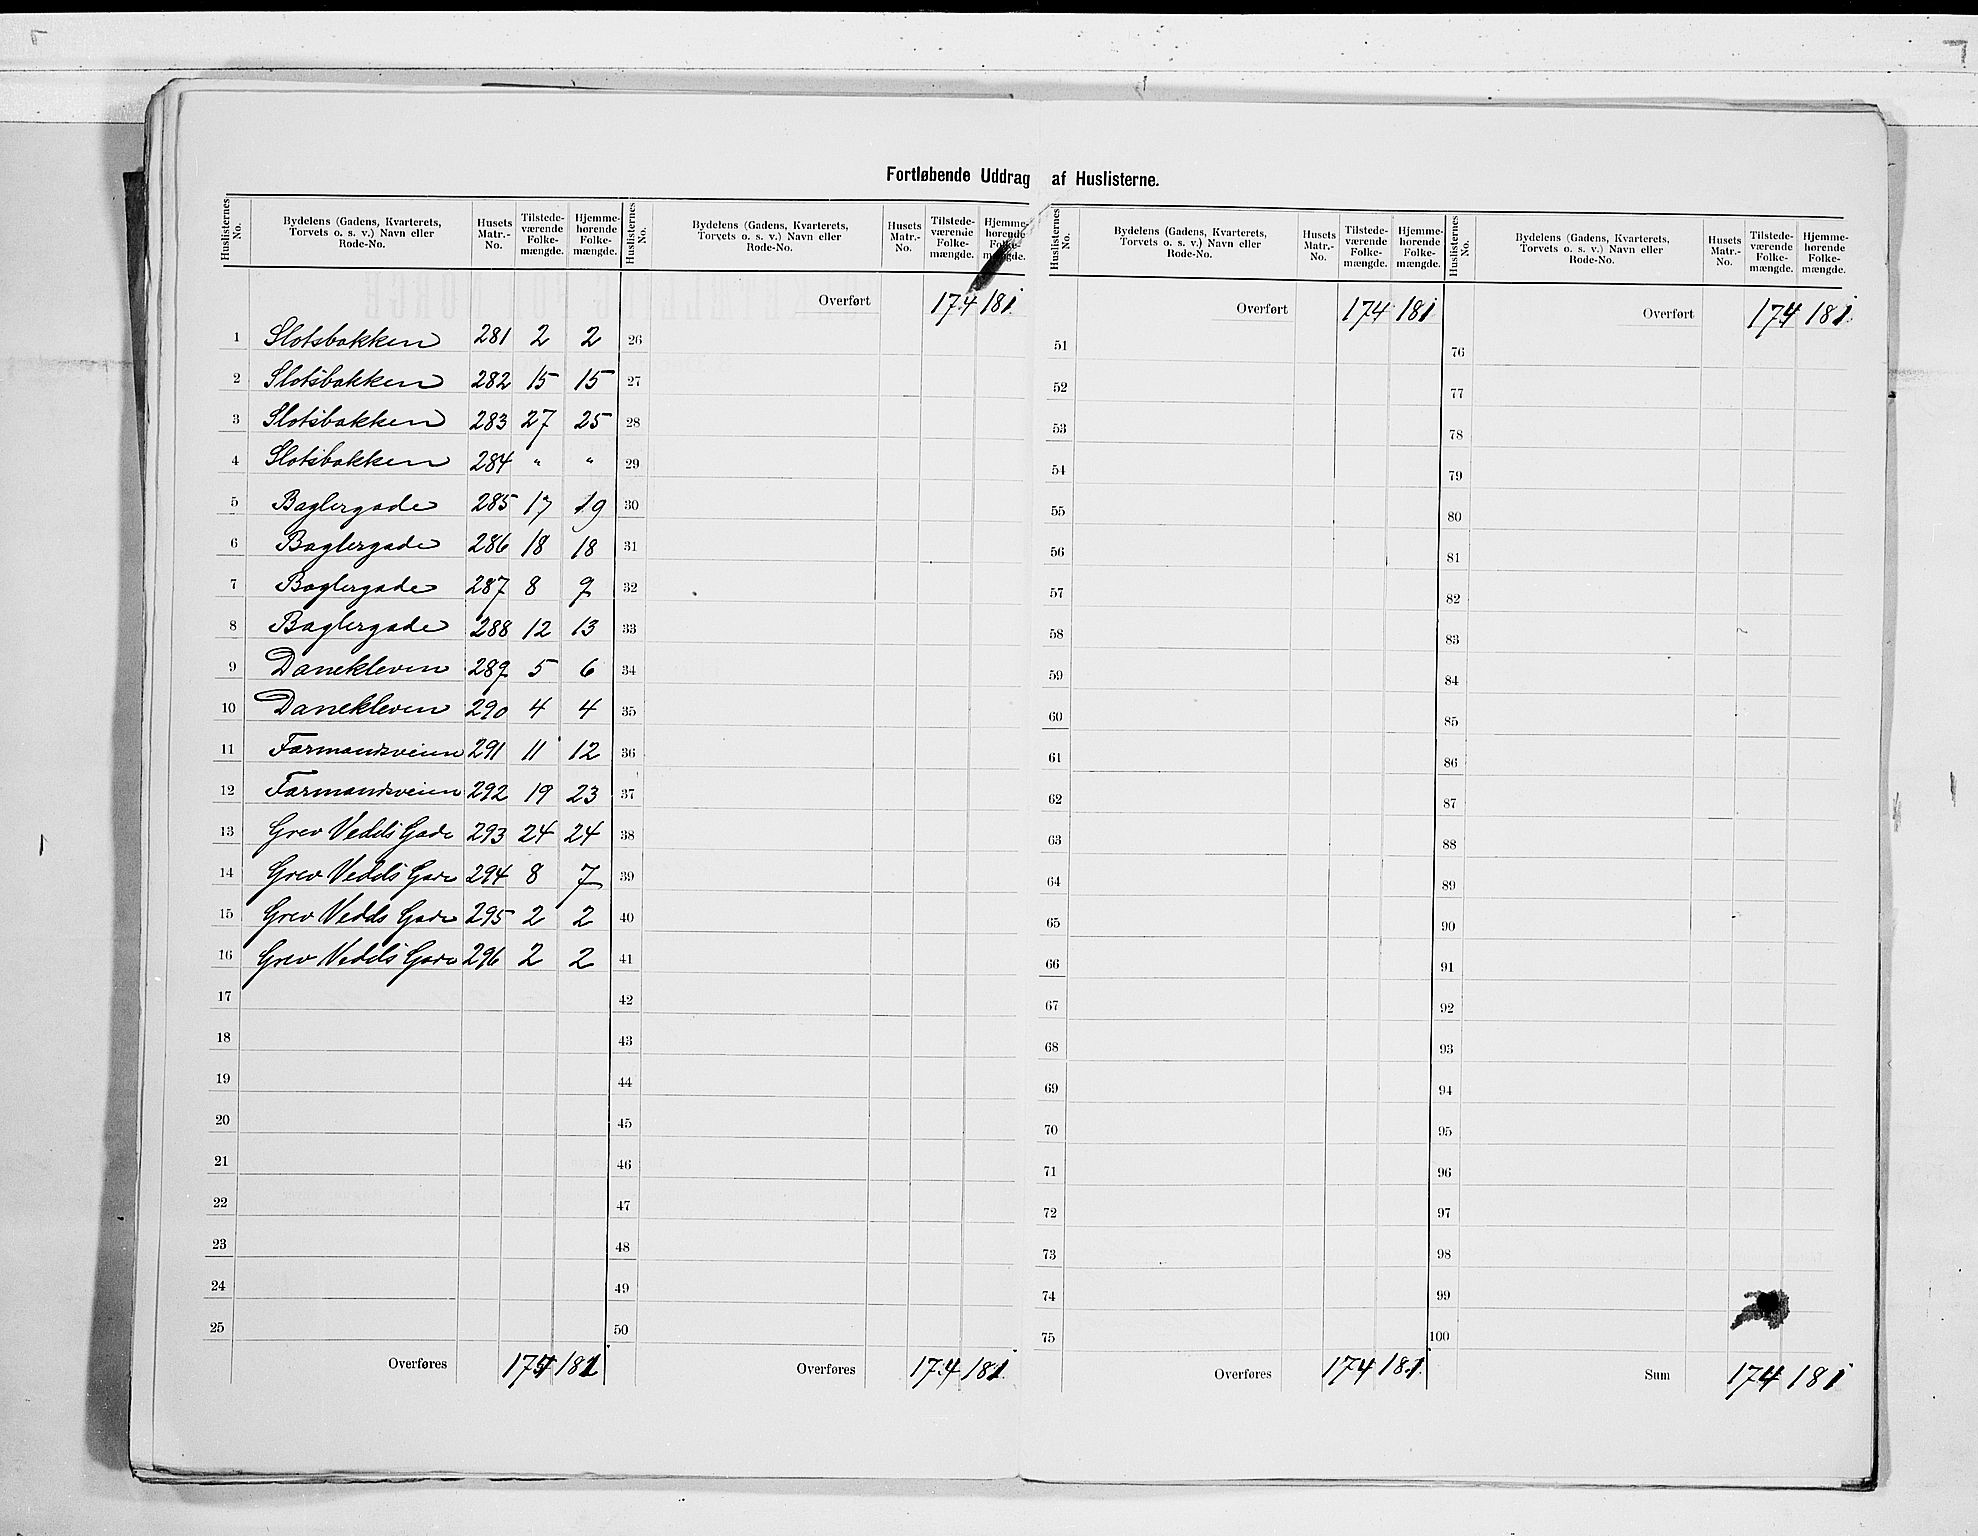 Fortløbende Uddrag af Huslisterne.
Huslisternes No. | Bydelens (Gadens, Kvarterets, Torvets o. s. v.) Navn eller Rode-No. | Husets Matr.-No. | Tilstedeværende Folkemængde. | Hjemmehørende Folkemængde.
1 Slotsbakken 281 2 2
2 Slotsbakken 282 15 15
3 Slotsbakken 283 27 25
4 Slotsbakken 284 " "
5 Baglergade 285 17 19
6 Baglergade 286 18 18
7 Baglergade 287 8 9
8 Baglergade 288 12 13
9 Danekleven 289 5 6
10 Danekleven 290 4 4
11 Farmandsveien 291 11 12
12 Farmandsveien 292 19 23
13 Grev Vedels Gade 293 24 24
14 Grev Vedels Gade 294 8 7
15 Grev Vedels Gade 295 2 2
16 Grev Vedels Gade 296 2 2
17
18
19
20
21
22
23
24
25
Overføres 174 181
Huslisternes No. | Bydelens (Gadens, Kvarterets, Torvets o. s. v.) Navn eller Rode-No. | Husets Matr.-No. | Tilstedeværende Folkemængde. | Hjemmehørende Folkemængde.
Overført 174 181
26
27
28
29
30
31
32
33
34
35
36
37
38
39
40
41
42
43
44
45
46
47
48
49
50
Overføres 174 181
Huslisternes No. | Bydelens (Gadens, Kvarterets, Torvets o. s. v.) Navn eller Rode-No. | Husets Matr.-No. | Tilstedeværende Folkemængde. | Hjemmehørende Folkemængde.
Overført 174 181
51
52
53
54
55
56
57
58
59
60
61
62
63
64
65
66
67
68
69
70
71
72
73
74
75
Overføres 174 181
Huslisternes No. | Bydelens (Gadens, Kvarterets, Torvets o. s. v.) Navn eller Rode-No. | Husets Matr.-No. | Tilstedeværende Folkemængde. | Hjemmehørende Folkemængde.
Overført 174 181
76
77
78
79
80
81
82
83
84
85
86
87
88
89
90
91
92
93
94
95
96
97
98
99
100
Sum 174 181